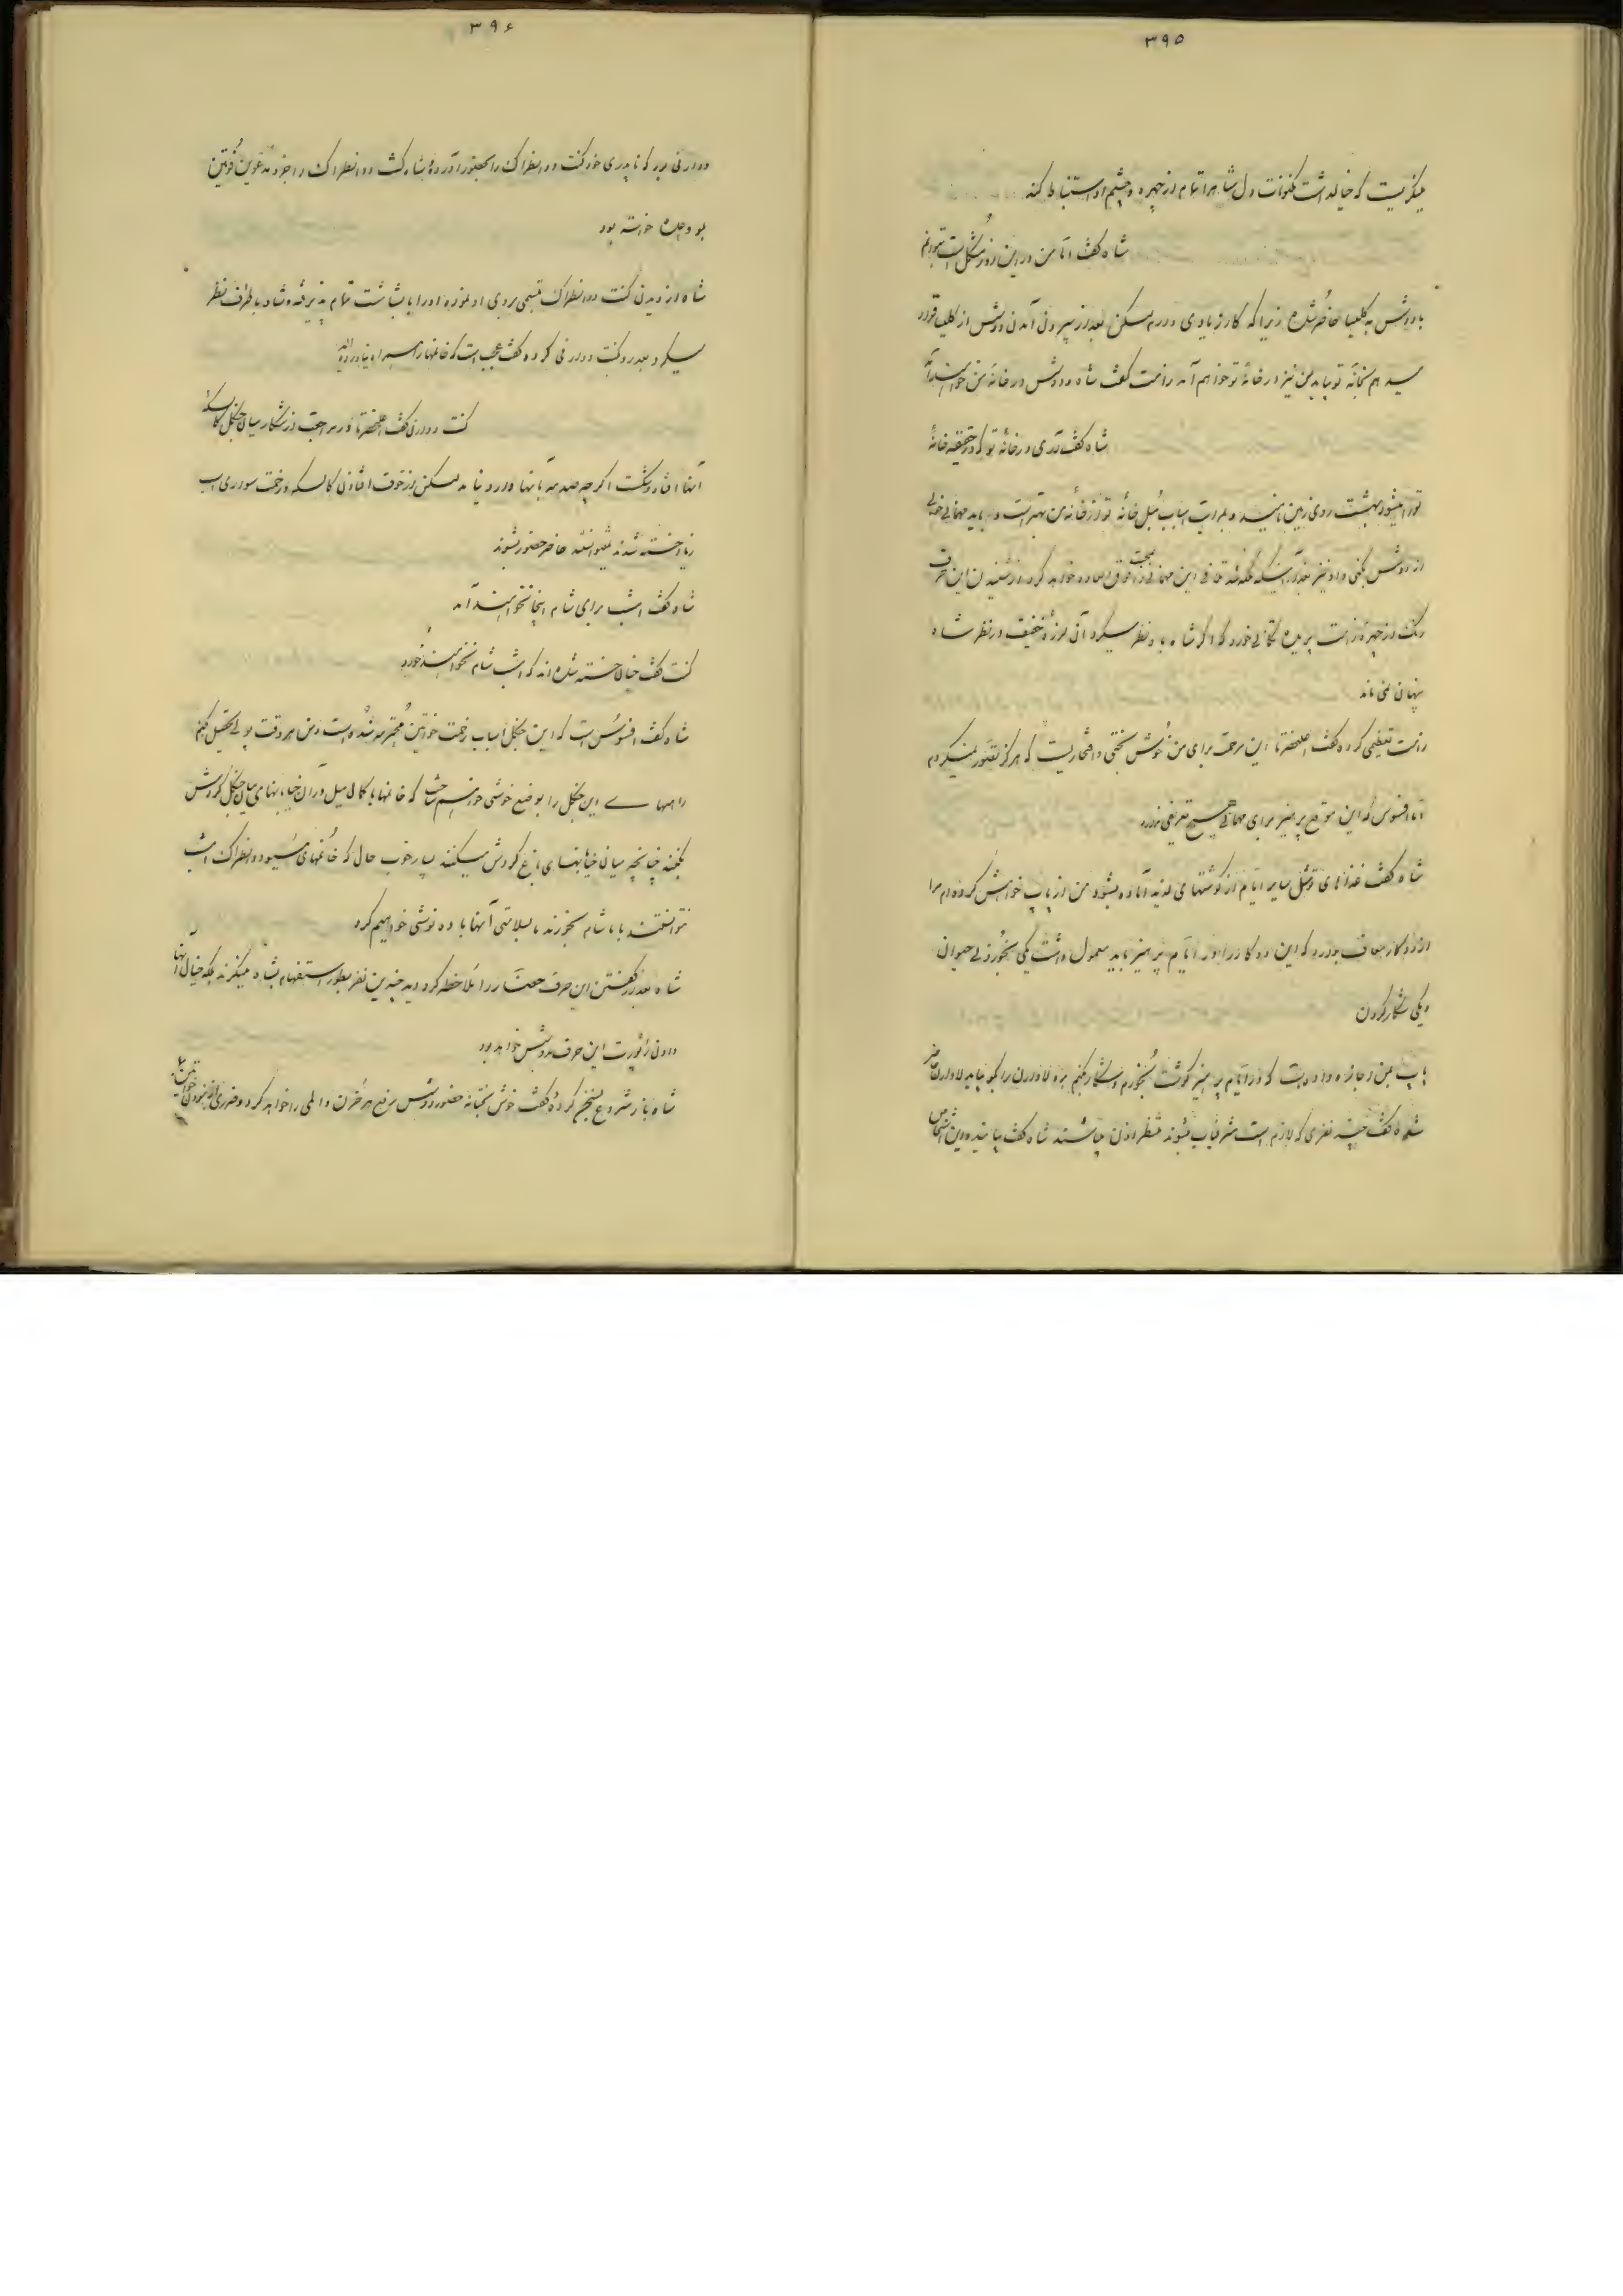 ۳۹۵
میگریست که خیال داشت مکنونات دل شاه را تمام از چهره و چشم او استنباط کند
شاه گفت اما من در این روز مشکل است بتوانم
با دوشس به کلیسا حاضر شده زیرا که کار زیادی دارم لیکن بعد از بیرون آمدن دوشس از کلیسا قرار
هم بخانه تو بیاید من نیز در خانهٔ تو خواهم آمد زامت گفت شاه و دوشس در خانه من خواهند آمد
شاه گفت آری در خانهٔ تو که در حقیقه خانهٔ
تو را میشود بهشت روی زمین نامید و بمراتب اسباب مبل خانه تو از خانه من بهتر است و باید مهمانی خوبی
از دوشس بکنی و او نیز بعد از آنکه ملکه شد تلافی این مهمانی را خواهد کرد از شنیدن این حرف
رنگ از چهره زامت پریده تکانی خورد که اگر شاه باو نظر میکرد آن لرزهٔ خفیف در نظر شاه
پنهان نمی ماند
زامت تعظیمی کرده گفت اعلیحضرتا این مرحمت برای من خوش بختی و افتخاریست که هرگز تصور نمیکردم
اما افسوس که این موقع پرهیز برای مهمانی هیچ تعریفی ندارد
شاه گفت غذاهای تو مثل سایر ایام از گوشتهای لذیذ آماده بشود من از پاپ خواهش کرده‌ام مرا
از دو کار معاف بدارد که این دو کار را در ایام پرهیز نباید معمول داشت یکی بخوردن حیوان
و یکی شکار کردن
پاپ بمن اجازه داده است که در ایام پرهیز گوشت بخورم و شکار کنم برو لاوارن را بگو بیاید لاوارن حاضر
شده گفت چند نفری که لازم است شرفیاب شوند منتظر اذن میباشند شاه گفت بیایند و این اشخاص
۳۹۶
دودرنی بود که نا پدری خود کنت دوانطراک را بحضور آورده شاه کنت دوانطراک را جزو مدعوین
بو وعده خواسته بود
شاه از دیدن کنت دوانطراک تبسمی بروی او نموده او را با بشاشت تمام پذیرفته و شاه باطراف نظر
میکرد بعد رو بکنت دودرنی کرده گفت عجب است که خانمها را همراه نیاورده‌اند
کنت دودرنی گفت اعلیحضرتا در مراجعت از شکار میان جنگل کالسکه
آنها افتاد و شکست اگر چه صدمه بآنها وارد نیامد لیکن از خوف افتادن کالسکه و زحمت سواری اسب
زیاد خسته شدند نمیتوانند حاضر حضور شوند
شاه گفت امشب برای شام اینجا نخواهند آمد
کنت گفت خیلی خسته شده‌اند که امشب شام نخواهند خورد
شاه گفت افسوس است که این جنگل اسباب زحمت خواتین محترمه شده است و من هر وقت پولی تحصیل کنم
راههای این جنگل را بوضع خوشی خواهم ساخت که خانمها با کمال میل در آن خیابانهای میان جنگل گردش
بکنند چنانچه میان خیابانهای باغ گردش میکنند بسیار خوب حال که خانمهای مسیو دوانطراک امشب
نتوانستند با ما شام بخورند ما بسلامتی آنها باده نوشی خواهیم کرد
شاه بعد از گفتن این حرف حضار را ملاحظه کرد دید چندین نفر بطور استفهام بشاه مینگرند بلکه خیال آنها
دادن راپورت این حرف بدوشس خواهد بود
شاه باز شروع بسخن کرده گفت خوش بختانه حضور دوشس رفع هر حزن و المی را خواهد کرد و ضرری از نبودن